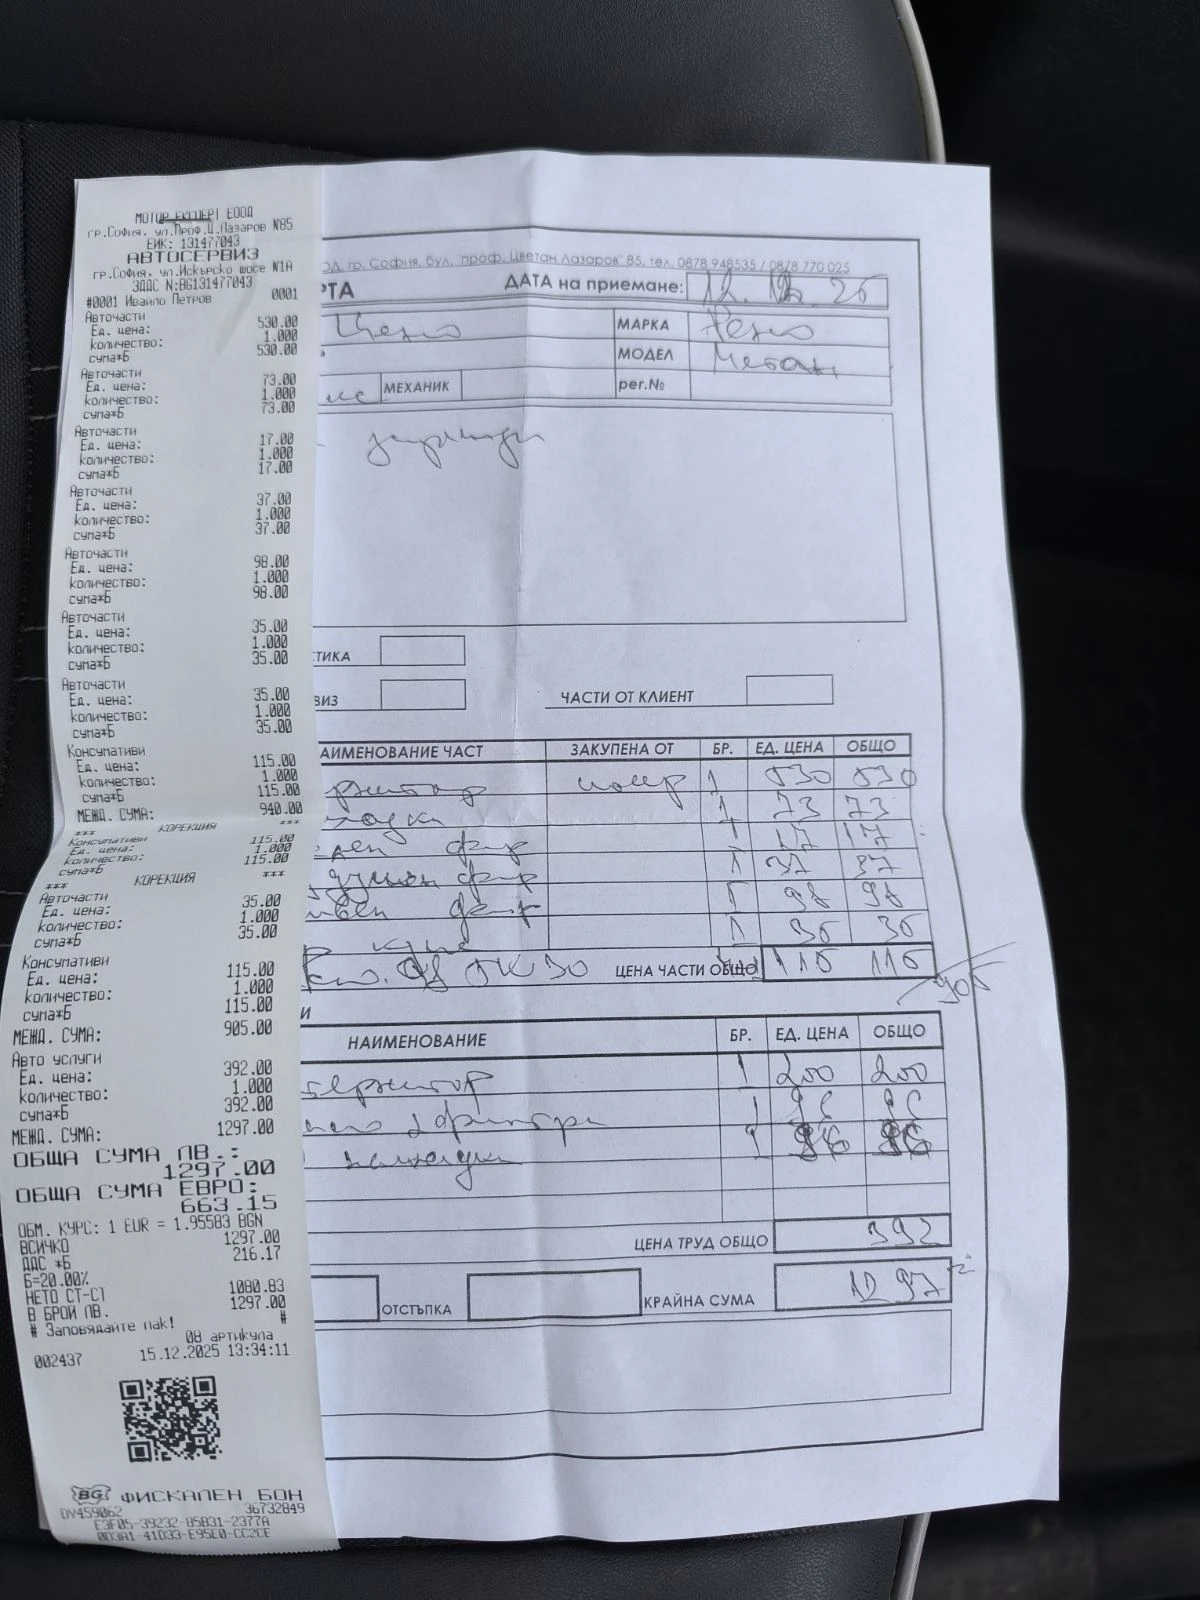 МОТОР ЕКСПЕРТ ЕООД
гр.София, ул.Проф.Ц.Лазаров №85
ЕИК: 131477043
АВТОСЕРВИЗ
гр.София, ул.Искърско шосе №1А
ЗДДС N:BG131477043
#0001 Ивайло Петров 0001
Авточасти
Ед. цена: 530.00
количество: 1.000
сума*Б 530.00
Авточасти
Ед. цена: 73.00
количество: 1.000
сума*Б 73.00
Авточасти
Ед. цена: 17.00
количество: 1.000
сума*Б 17.00
Авточасти
Ед. цена: 37.00
количество: 1.000
сума*Б 37.00
Авточасти
Ед. цена: 98.00
количество: 1.000
сума*Б 98.00
Авточасти
Ед. цена: 35.00
количество: 1.000
сума*Б 35.00
Авточасти
Ед. цена: 35.00
количество: 1.000
сума*Б 35.00
Консумативи
Ед. цена: 115.00
количество: 1.000
сума*Б 115.00
МЕЖД. СУМА: 940.00
*** КОРЕКЦИЯ ***
Консумативи
Ед. цена: 115.00
количество: 1.000
сума*Б 115.00
*** КОРЕКЦИЯ ***
Авточасти
Ед. цена: 35.00
количество: 1.000
сума*Б 35.00
Консумативи
Ед. цена: 115.00
количество: 1.000
сума*Б 115.00
МЕЖД. СУМА: 905.00
Авто услуги
Ед. цена: 392.00
количество: 1.000
сума*Б 392.00
МЕЖД. СУМА: 1297.00
ОБЩА СУМА ЛВ.:
1297.00
ОБЩА СУМА ЕВРО:
663.15
ОБМ. КУРС: 1 EUR = 1.95583 BGN
ВСИЧКО 1297.00
ДДС *Б 216.17
Б=20.00%
НЕТО СТ-СТ 1080.83
В БРОЙ ЛВ. 1297.00
# Заповядайте пак! #
08 артикула
002437 15.12.2025 13:34:11
BG ФИСКАЛЕН БОН
DY459062 36732849
E3F05-39232-B5B31-2377A
0D3A1-41D33-E95E0-CC2CE
ОД, гр. София, бул. "проф. Цветан Лазаров" 85, тел. 0878 948535 / 0878 770 025
РТА ДАТА на приемане:
МАРКА Рено
МОДЕЛ Меган
МЕХАНИК рег.№
ТИКА
ВИЗ ЧАСТИ ОТ КЛИЕНТ
АИМЕНОВАНИЕ ЧАСТ ЗАКУПЕНА ОТ БР. ЕД. ЦЕНА ОБЩО
1 530 530
1 73 73
1 17 17
1 37 37
1 98 98
1 35 35
5W30 ЦЕНА ЧАСТИ ОБЩО 115 115
905
И
НАИМЕНОВАНИЕ БР. ЕД. ЦЕНА ОБЩО
1 200 200
1 96 96
96 96
ЦЕНА ТРУД ОБЩО 392
ОТСТЪПКА КРАЙНА СУМА 1297